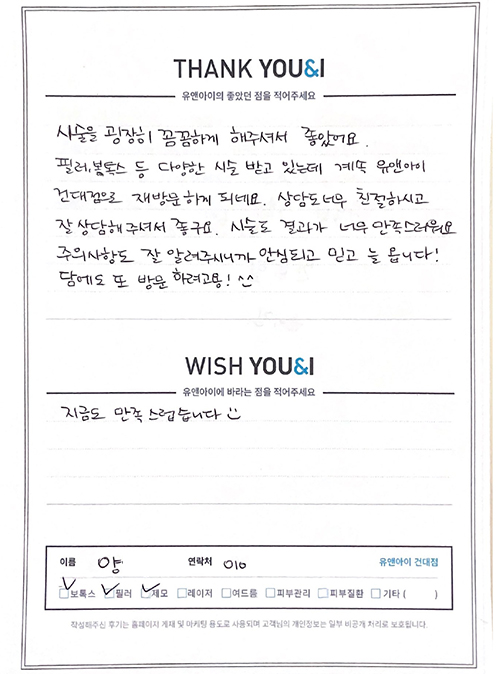 THANK YOU&I
유앤아이의 좋았던 점을 적어주세요
시술을 굉장히 꼼꼼하게 해주셔서 좋았어요.
필러, 볼톡스 등 다양한 시술 받고 있는데 계속 유앤아이
건대점으로 재방문하게 되네요. 상담도너무 친절하시고
잘 상담해주셔서 좋구요. 시술도 결과가 너무 만족스러워요
주의사항도 잘 알려주시니까 안심되고 믿고 늘 옵니다!
담에도 또 방문 하려고용! ^^
WISH YOU&I
유앤아이에 바라는 점을 적어주세요
지금도 만족스럽습니다 :)
이름 양 연락처 010 유앤아이 건대점
보톡스 필러 제모 레이저 여드름 피부관리 피부질환 기타 ( )
작성해주신 후기는 홈페이지 게재 및 마케팅 용도로 사용되며 고객님의 개인정보는 일부 비공개 처리로 보호됩니다.